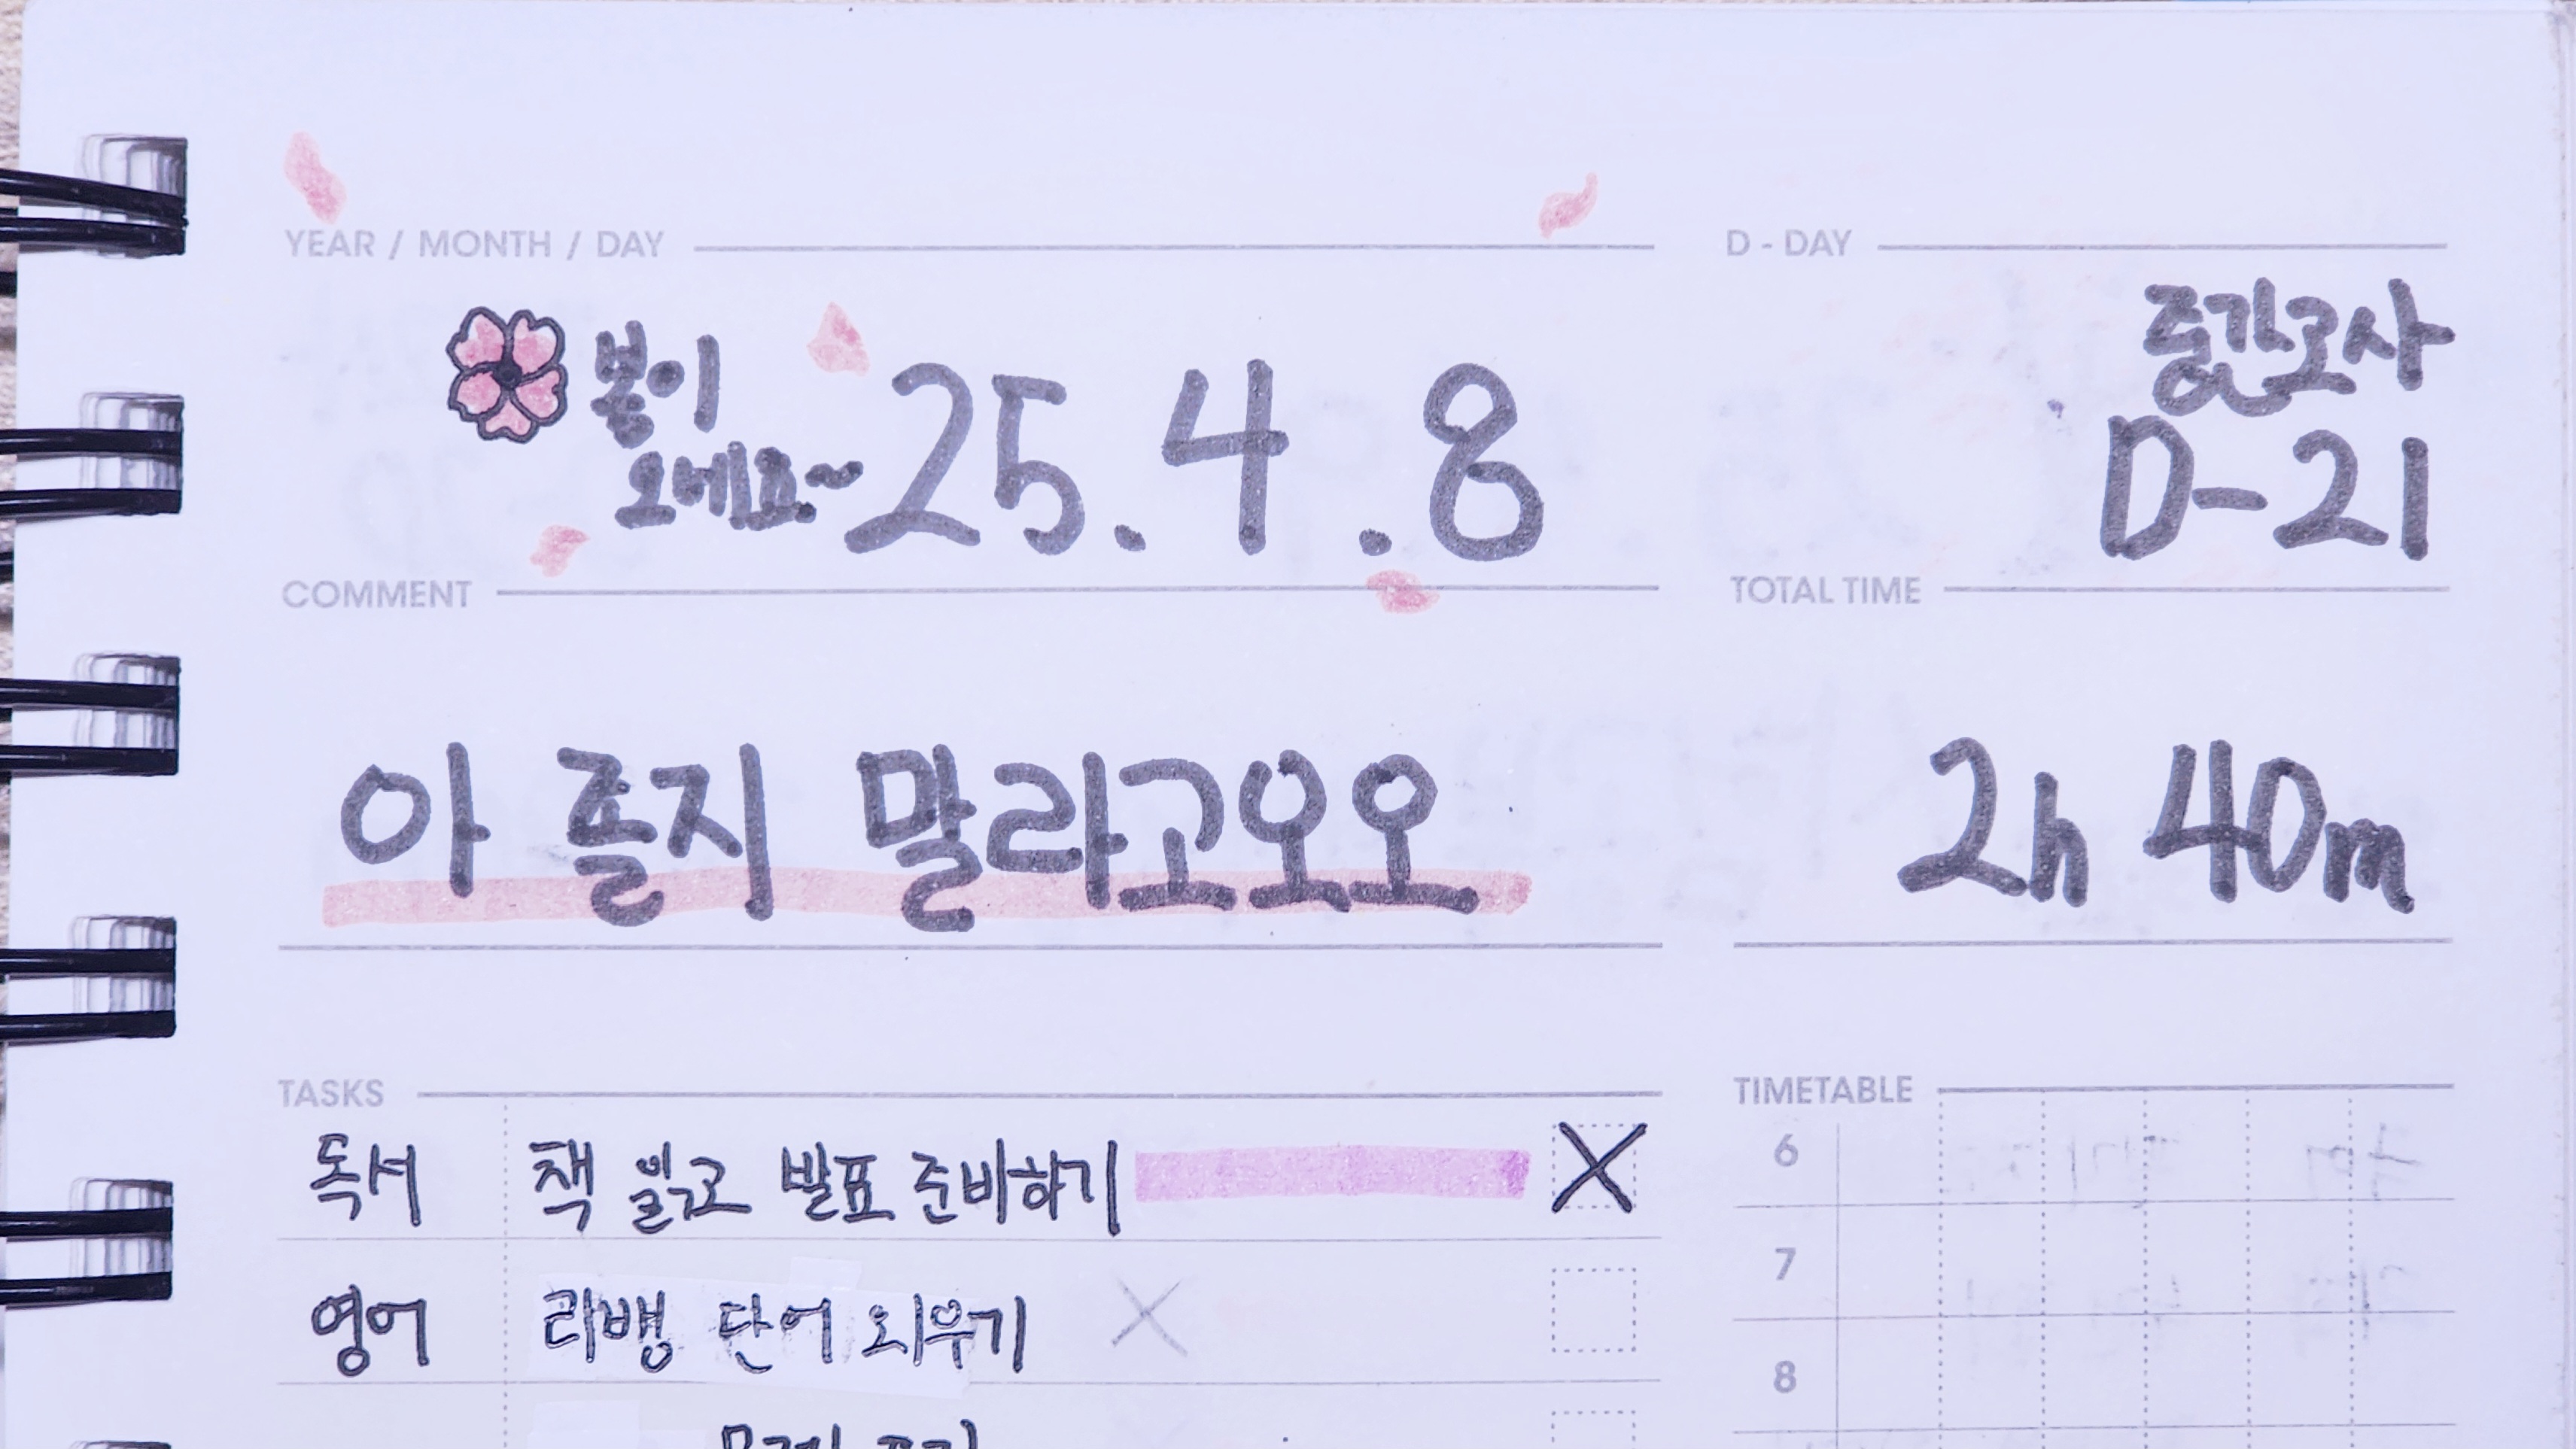 YEAR / MONTH / DAY
D - DAY
봄이
오네요~
25.4.8
중간고사
D-21
COMMENT
TOTAL TIME
아 졸지 말라고오오
2h 40m
TASKS
TIMETABLE
독서 책 읽고 발표 준비하기
6
영어 리뱅 단어 외우기
7
8